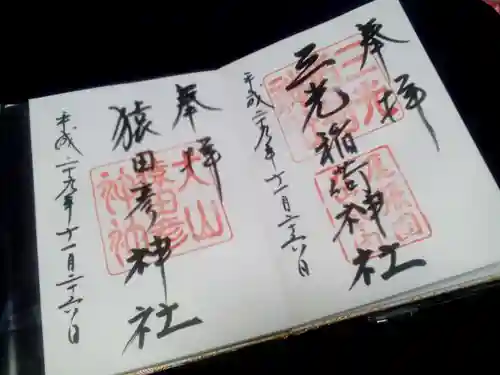 奉拝
三光稲荷神社
平成二十九年十一月二十六日
奉拝
猿田彦神社
平成二十九年十一月二十六日